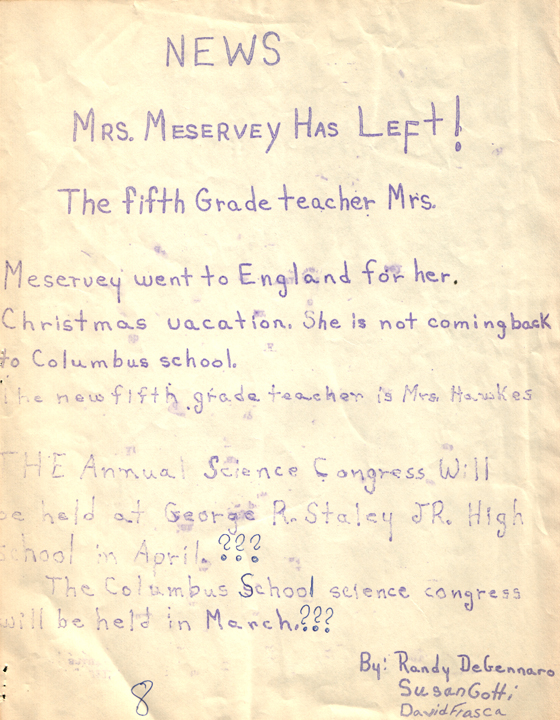 NEWS
MRS. MESERVEY HAS LEFt!
The fifth Grade teacher Mrs.
Meservey went to England for her.
Christmas vacation. She is not coming back
to Columbus school.
The new fifth grade teacher is Mrs. Hawkes
THE Annual Science Congress Will
be held at George R. Staley JR. High
school in April. ???
The Columbus School science congress
will be held in March.???
By: Randy DeGennaro
Susan Gotti
David Frasca
8